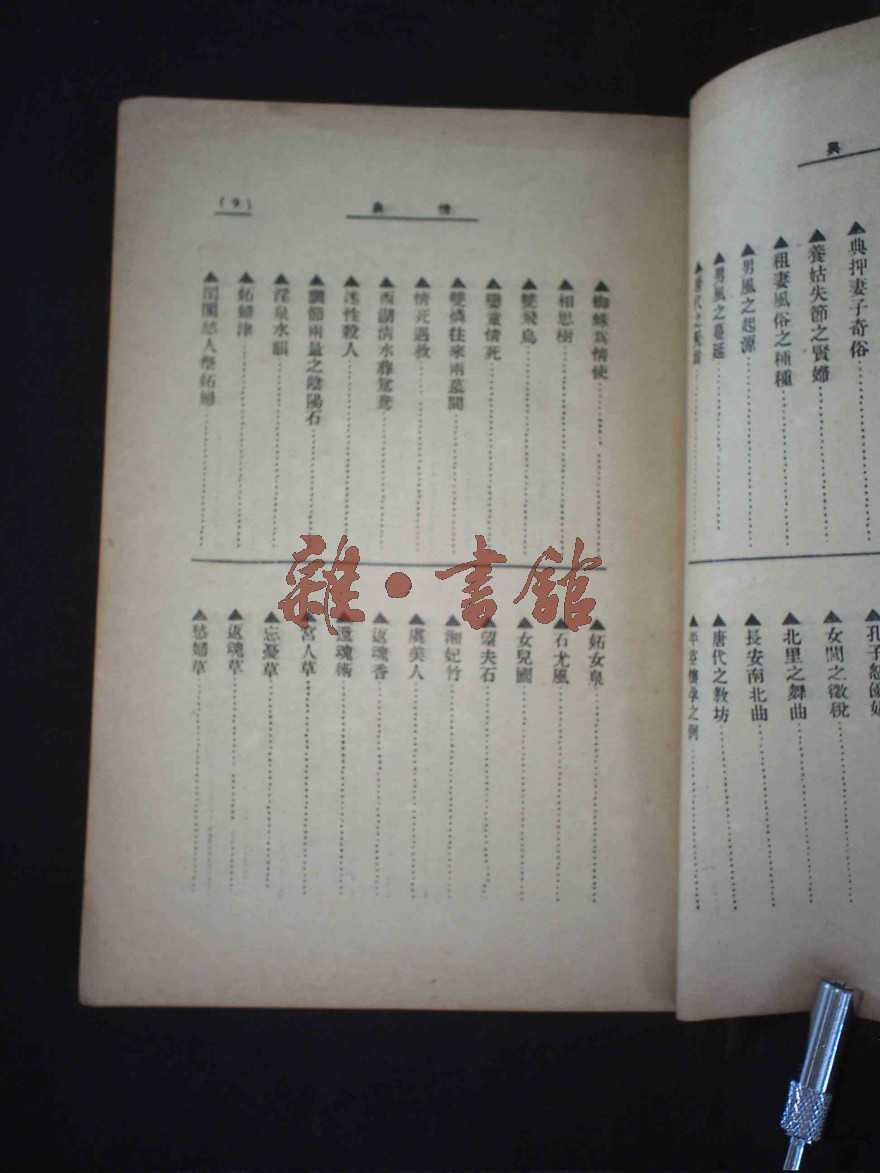 典
典押妻子奇俗
養姑失節之賢婦
租妻風俗之種種
男風之起源
男風之蔓延
孔子
女閭之徵稅
北里之舞曲
長安南北曲
唐代之教坊
情典
(9)
蜘蛛為情使
相思樹
雙飛鳥
孌童情死
雙燐往來兩墓間
情死遇救
西湖清水葬鴛鴦
淫性殺人
調節雨量之陰陽石
淫泉水韻
妬婦津
閨閣愁人祭妬婦
妬女泉
石尤風
女兒國
望夫石
湘妃竹
虞美人
返魂香
還魂術
宮人草
忘憂草
返魂草
愁婦草
雜·書館